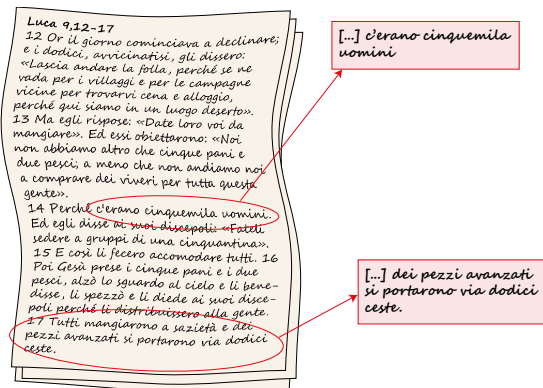 Luca 9,12-17
12 Or il giorno cominciava a declinare;
e i dodici, avvicinatisi, gli dissero:
«Lascia andare la folla, perché se ne
vada per i villaggi e per le campagne
vicine per trovarvi cena e alloggio,
perché qui siamo in un luogo deserto».
13 Ma egli rispose: «Date loro voi da
mangiare». Ed essi obiettarono: «Noi
non abbiamo altro che cinque pani e
due pesci, a meno che non andiamo noi
a comprare dei viveri per tutta questa
gente».
14 Perché c'erano cinquemila uomini.
Ed egli disse ai suoi discepoli: «Fateli
sedere a gruppi di una cinquantina».
15 E così li fecero accomodare tutti. 16
Poi Gesù prese i cinque pani e i due
pesci, alzò lo sguardo al cielo e li bene-
disse, li spezzò e li diede ai suoi disce-
poli perché li distribuissero alla gente.
17 Tutti mangiarono a sazietà e dei
pezzi avanzati si portarono via dodici
ceste.
[...] c'erano cinquemila
uomini
[...] dei pezzi avanzati
si portarono via dodici
ceste.